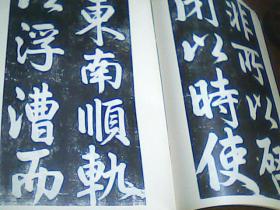 非所以啓
閉以時使
東南順軌
以浮漕而